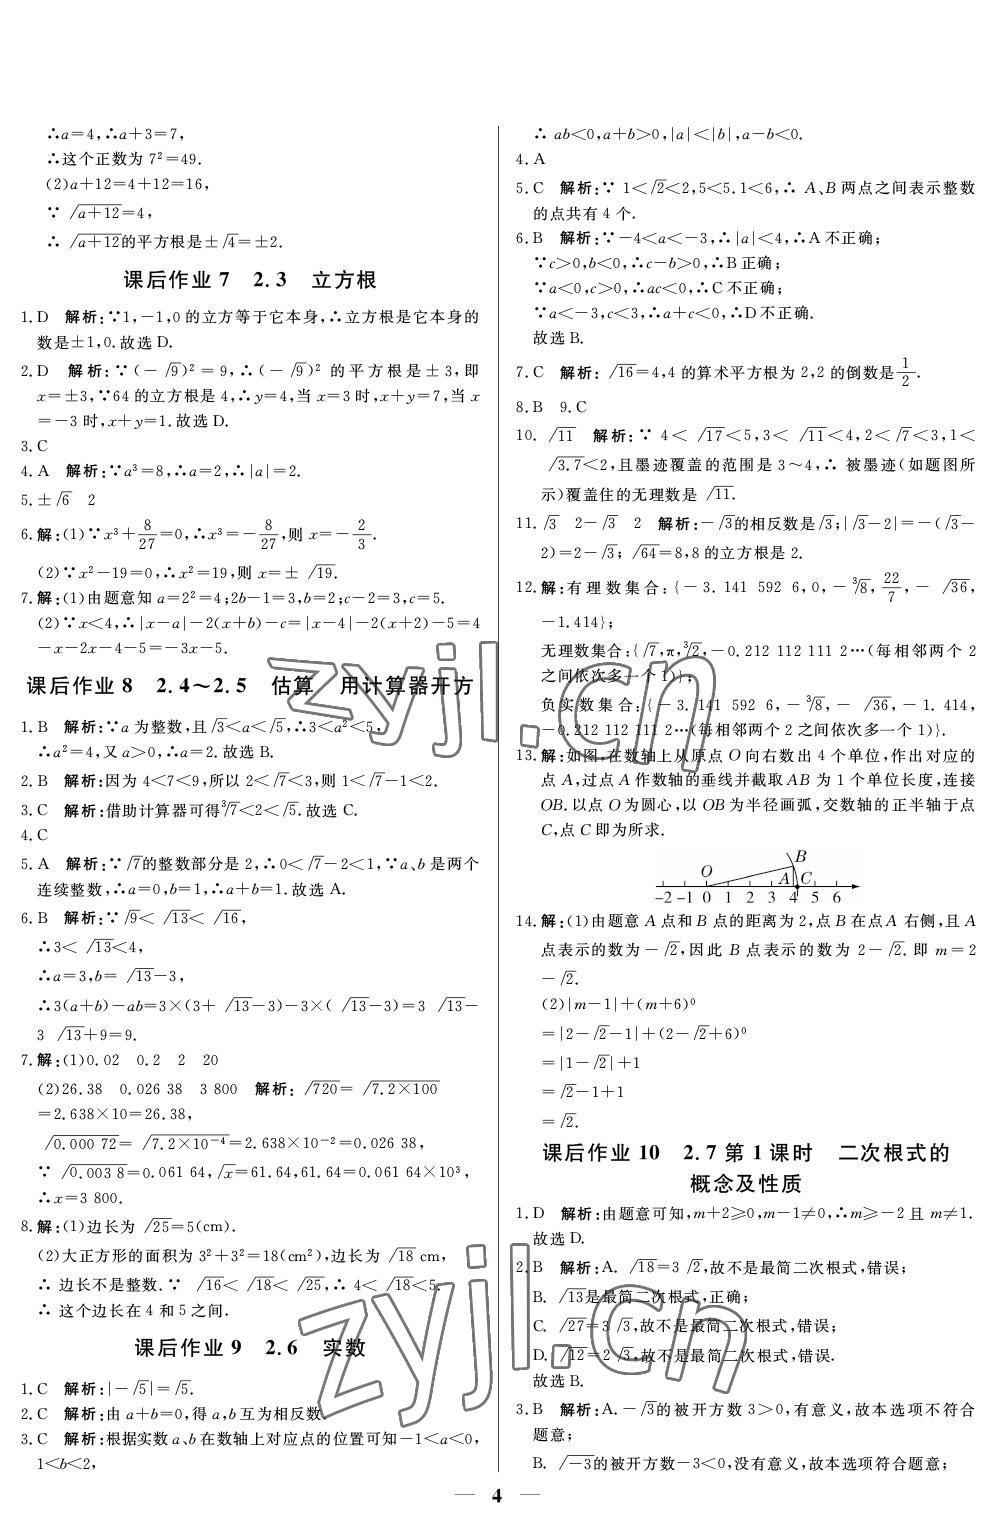 ∴a=4,∴a+3=7,
∴这个正数为 7²=49.
(2)a+12=4+12=16,
∵ √(a+12)=4,
∴ √(a+12)的平方根是±√4=±2.
课后作业 7　2.3　立方根
1. D　解析:∵1,-1,0 的立方等于它本身,∴立方根是它本身的
数是±1,0.故选 D.
2. D　解析:∵(-√9)²=9,∴(-√9)² 的平方根是±3,即
x=±3,∵64 的立方根是 4,∴y=4,当 x=3 时,x+y=7,当 x
=-3 时,x+y=1.故选 D.
3. C
4. A　解析:∵a³=8,∴a=2,∴|a|=2.
5. ±√6　2
6. 解:(1)∵x³+8/27=0,∴x³=-8/27,则 x=-2/3.
(2)∵x²-19=0,∴x²=19,则 x=±√19.
7. 解:(1)由题意知 a=2²=4;2b-1=3,b=2;c-2=3,c=5.
(2)∵x<4,∴|x-a|-2(x+b)-c=|x-4|-2(x+2)-5=4
-x-2x-4-5=-3x-5.
课后作业 8　2.4～2.5　估算　用计算器开方
1. B　解析:∵a 为整数,且√3<a<√5,∴3<a²<5,
∴a²=4,又 a>0,∴a=2.故选 B.
2. B　解析:因为 4<7<9,所以 2<√7<3,则 1<√7-1<2.
3. C　解析:借助计算器可得³√7<2<√5.故选 C.
4. C
5. A　解析:∵√7的整数部分是 2,∴0<√7-2<1,∵a、b 是两个
连续整数,∴a=0,b=1,∴a+b=1.故选 A.
6. B　解析:∵√9<√13<√16,
∴3<√13<4,
∴a=3,b=√13-3,
∴3(a+b)-ab=3×(3+√13-3)-3×(√13-3)=3√13-
3√13+9=9.
7. 解:(1)0.02　0.2　2　20
(2)26.38　0.026 38　3 800　解析:√720=√(7.2×100)
=2.638×10=26.38,
√0.000 72=√(7.2×10⁻⁴)=2.638×10⁻²=0.026 38,
∵ √0.003 8=0.061 64,√x=61.64,61.64=0.061 64×10³,
∴x=3 800.
8. 解:(1)边长为 √25=5(cm).
(2)大正方形的面积为 3²+3²=18(cm²),边长为 √18 cm,
∴ 边长不是整数.∵ √16<√18<√25,∴4<√18<5.
∴ 这个边长在 4 和 5 之间.
课后作业 9　2.6　实数
1. C　解析:|-√5|=√5.
2. C　解析:由 a+b=0,得 a,b 互为相反数.
3. C　解析:根据实数 a、b 在数轴上对应点的位置可知-1<a<0,
1<b<2,
∴ ab<0,a+b>0,|a|<|b|,a-b<0.
4. A
5. C　解析:∵ 1<√2<2,5<5.1<6,∴ A、B 两点之间表示整数
的点共有 4 个.
6. B　解析:∵-4<a<-3,∴|a|<4,∴A 不正确;
∵c>0,b<0,∴c-b>0,∴B 正确;
∵a<0,c>0,∴ac<0,∴C 不正确;
∵a<-3,c<3,∴a+c<0,∴D 不正确.
故选 B.
7. C　解析:√16=4,4 的算术平方根为 2,2 的倒数是1/2.
8. B　9. C
10. √11　解析:∵ 4<√17<5,3<√11<4,2<√7<3,1<
√3.7<2,且墨迹覆盖的范围是 3～4,∴ 被墨迹(如题图所
示)覆盖住的无理数是 √11.
11. √3　2-√3　2　解析:-√3的相反数是√3;|√3-2|=-(√3-
2)=2-√3;√64=8,8 的立方根是 2.
12. 解:有理数集合:{-3.141 592 6,0,-³√8,22/7,-√36,
-1.414};
无理数集合:{√7,π,³√2,-0.212 112 111 2…(每相邻两个 2
之间依次多一个 1)};
负实数集合:{-3.141 592 6,-³√8,-√36,-1.414,
-0.212 112 111 2…(每相邻两个 2 之间依次多一个 1)}.
13. 解:如图,在数轴上从原点 O 向右数出 4 个单位,作出对应的
点 A,过点 A 作数轴的垂线并截取 AB 为 1 个单位长度,连接
OB.以点 O 为圆心,以 OB 为半径画弧,交数轴的正半轴于点
C,点 C 即为所求.
B
O　A　C
-2 -1 0 1 2 3 4 5 6
14. 解:(1)由题意 A 点和 B 点的距离为 2,点 B 在点 A 右侧,且 A
点表示的数为-√2,因此 B 点表示的数为 2-√2.即 m=2
-√2.
(2)|m-1|+(m+6)⁰
=|2-√2-1|+(2-√2+6)⁰
=|1-√2|+1
=√2-1+1
=√2.
课后作业 10　2.7 第 1 课时　二次根式的
概念及性质
1. D　解析:由题意可知,m+2≥0,m-1≠0,∴m≥-2 且 m≠1.
故选 D.
2. B　解析:A. √18=3√2,故不是最简二次根式,错误;
B. √13是最简二次根式,正确;
C. √27=3√3,故不是最简二次根式,错误;
D. √12=2√3,故不是最简二次根式,错误.
故选 B.
3. B　解析:A.-√3的被开方数 3>0,有意义,故本选项不符合
题意;
B. √-3的被开方数-3<0,没有意义,故本选项符合题意;
4
zyjl.cn
zyjl.cn